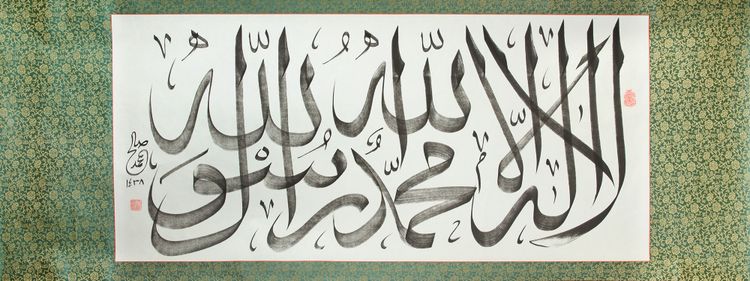 لا اله الا الله محمد رسول الله
صالح
١٤٣٨